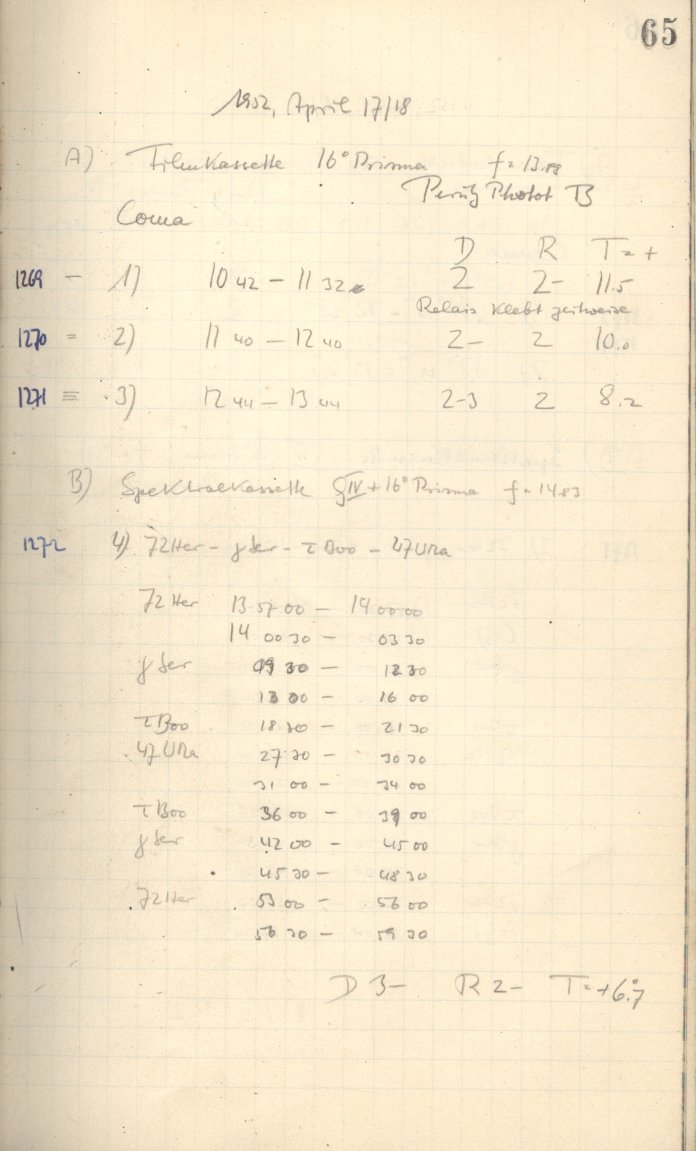 65
1952, April 17/18
A) Filmkassette 16° Prisma f = 13.88
Perutz Photot B
Coma
D R T= +
1269 – 1) 10 42 – 11 32 2 2- 11.5
Relais klebt zeitweise
1270 = 2) 11 40 – 12 40 2- 2 10.0
1271 ≡ 3) 12 44 – 13 44 2-3 2 8.2
B) Spektralkassette gIV + 16° Prisma f = 14.83
1272 4) 72 Her – γ Ser – τ Boo – 47 UMa
72 Her 13 57 00 – 14 00 00
14 00 30 – 03 30
γ Ser 09 30 – 12 30
13 00 – 16 00
τ Boo 18 30 – 21 30
47 UMa 27 30 – 30 30
31 00 – 34 00
τ Boo 36 00 – 39 00
γ Ser 42 00 – 45 00
45 30 – 48 30
72 Her 53 00 – 56 00
56 30 – 59 30
D 3- R 2- T = +6.°7